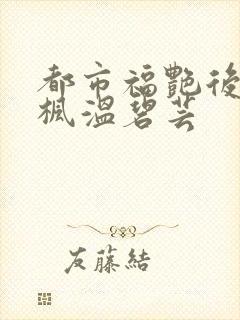 都市福艷後
楓溫碧芸
友藤結